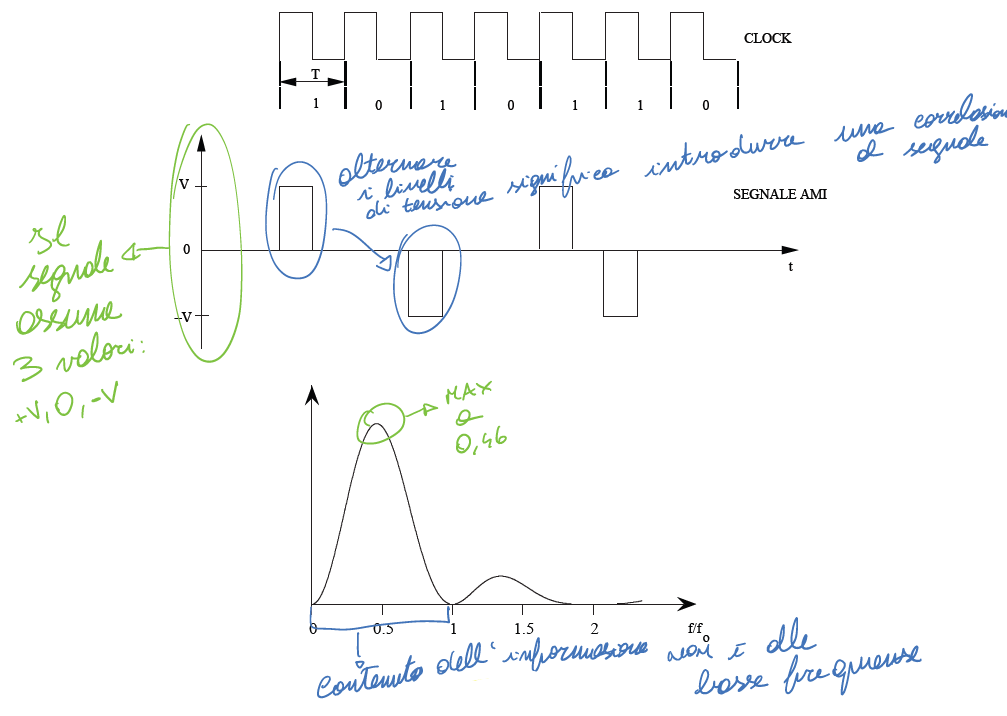 CLOCK
T
1 0 1 0 1 1 0
alternare
i livelli
di tensione significa introdurre una correlazion
d segnale
V
SEGNALE AMI
0
t
-V
Il
segnale
assume
3 valori:
+V, 0, -V
MAX
a
0,46
0 0.5 1 1.5 2 f/fo
contenuto dell'informazione non è alle
basse frequenze